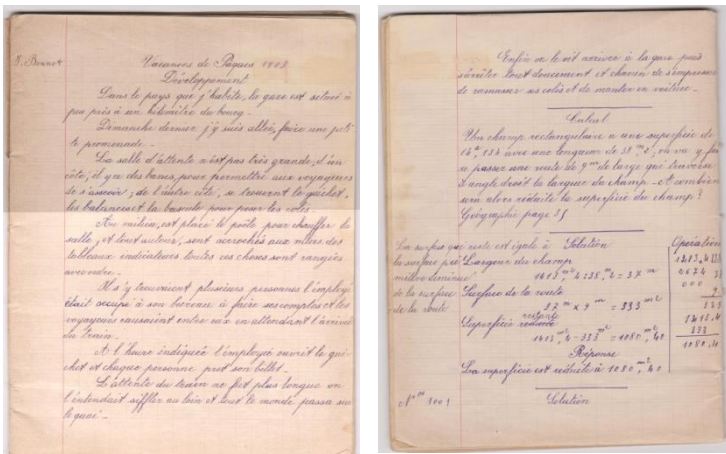 Vacances de Pâques 1903
Développement
Dans le pays que j'habite, la gare est située à
peu près à un kilomètre du bourg.
Dimanche dernier j'y suis allée, faire une peti
te promenade.
La salle d'attente n'est pas très grande; d'un
côté, il y a des bancs, pour permettre aux voyageurs
de s'asseoir; de l'autre côté, se trouvent le guichet,
les balances et la bascule pour peser les colis.
Au milieu, est placé le poêle pour chauffer la
salle, et tout autour, sont accrochés aux murs des
tableaux indicateurs toutes ces choses sont rangées
avec ordre.
Il s'y trouvaient plusieurs personnes l'employé
était occupé à son bureau à faire ses comptes et les
voyageurs causaient entre eux en attendant l'arrivée
du train.
A l'heure indiquée l'employé ouvrit le gui
chet et chaque personne prit son billet.
L'attente du train ne fut plus longue on
l'entendait siffler au loin et tout le monde passa sur
le quai.
Enfin on le vit arriver à la gare puis
s'arrêter tout doucement et chacun de s'empresser
de ramasser ses colis et de monter en voiture.
Calcul
Un champ rectangulaire a une superficie de
avec une longueur de 38 m, 2; on va y fai
re passer une route de 9 m de large qui traverse
à angle droit la largeur du champ. A combien
sera alors réduite la superficie du champ?
Géographie page 35
Solution
Opération
Largeur du champ
Surface de la route
37 m x 9 m = 333 m2
Superficie restante
- 333 m2 = 1080 m2, 40
Réponse
La superficie est réduite à 1080 m2, 40
Solution